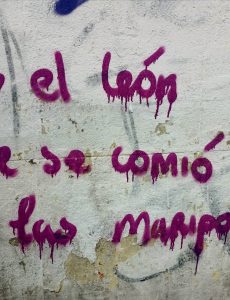 el león
se comió
las maripo